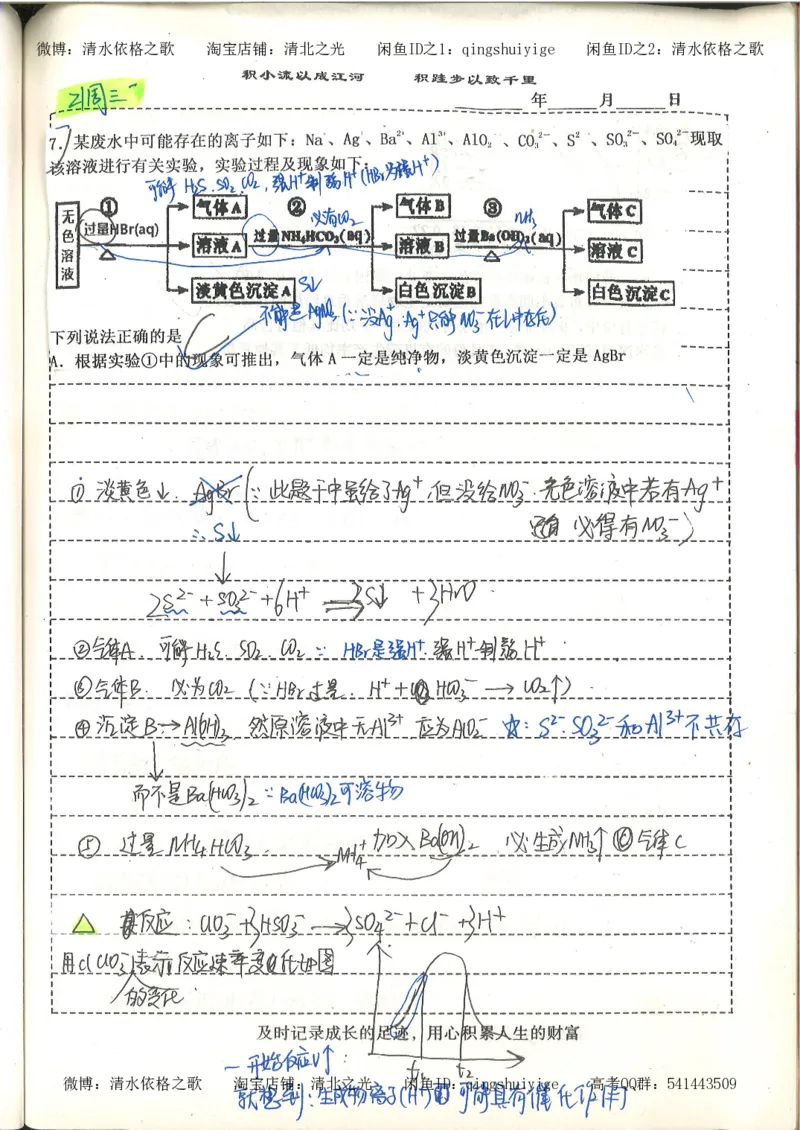 微博：清水依格之歌 淘宝店铺：清北之光 闲鱼ID之1：qingshuiyige 闲鱼ID之2：清水依格之歌
积小流以成江河 积跬步以致千里
21周三
年 月 日
7. 某废水中可能存在的离子如下：Na⁺、Ag⁺、Ba²⁺、Al³⁺、AlO₂⁻、CO₃²⁻、S²⁻、SO₃²⁻、SO₄²⁻现取
该溶液进行有关实验，实验过程及现象如下：
可能 H₂S、SO₂、CO₂，强H⁺制弱H⁺(HBr为强H⁺)
无色溶液 ① 过量HBr(aq) △ 气体A 溶液A 淡黄色沉淀A S↓
② 必有CO₂ 过量NH₄HCO₃(aq) 气体B 溶液B 白色沉淀B
③ NH₃ 过量Ba(OH)₂(aq) △ 气体C 溶液C 白色沉淀C
不能是AgNO₃(∵没Ag⁺，Ag⁺只能NO₃⁻在中存在)
下列说法正确的是 C
A．根据实验①中的现象可推出，气体A一定是纯净物，淡黄色沉淀一定是AgBr
① 淡黄色↓. AgBr (∵此题干中虽给了Ag⁺，但没给NO₃⁻. 无色溶液中若有Ag⁺
必得有NO₃⁻)
∴S↓
2S²⁻+SO₃²⁻+6H⁺ ⇒ 3S↓ +3H₂O.
②气体A. 可能H₂S. SO₂. CO₂ ∵ HBr是强H⁺. 强H⁺制弱H⁺.
③气体B. 必为CO₂ (∵HBr过量. H⁺+HCO₃⁻→CO₂↑).
④沉淀B→Al(OH)₃ 然原溶液中无Al³⁺ 应为AlO₂⁻ ∵S²⁻. SO₃²⁻和Al³⁺不共存
而不是Ba(HCO₃)₂ ∵Ba(HCO₃)₂可溶物
⑤ 过量NH₄HCO₃. NH₄⁺ 加入Ba(OH)₂ 必生成NH₃↑ ⑥气体C
△ 某反应：ClO₃⁻+3HSO₃⁻→3SO₄²⁻+Cl⁻+3H⁺
用c(ClO₃⁻)表示反应速率变化如图
的变化
t₁ t₂
及时记录成长的足迹，用心积累人生的财富
一开始反应V↑：
微博：清水依格之歌 淘宝店铺：清北之光 闲鱼ID：qingshuiyige 高考QQ群：541443509
就想到：生成物离子(H⁺)可能具有催化作用